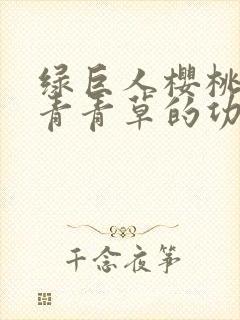 绿巨人樱桃
青青草的功
千念夜筝